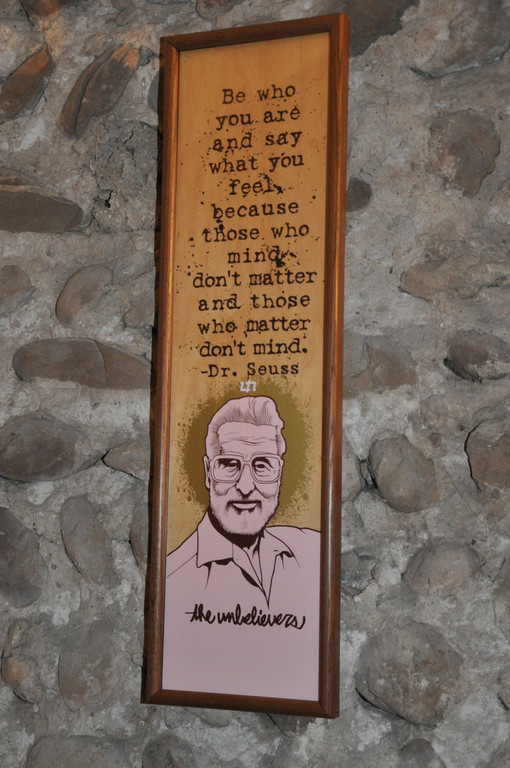 Be who
you are
and say
what you
feel,
because
those who
mind
don't matter
and those
who matter
don't mind.
-Dr. Seuss
the unbelievers